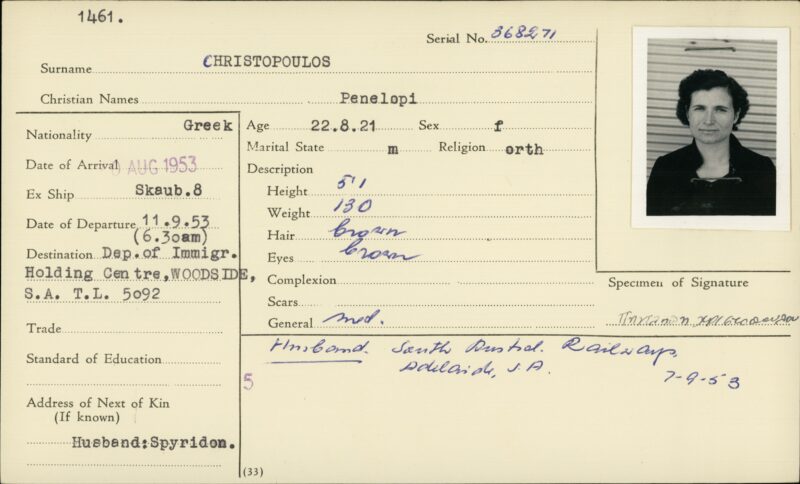 1461.
Serial No. 368271
Surname CHRISTOPOULOS
Christian Names Penelopi
Nationality Greek
Date of Arrival AUG 1953
Ex Ship Skaub.8
Date of Departure 11.9.53
(6.30am)
Destination Dep.of Immigr.
Holding Centre,WOODSIDE,
S.A. T.L. 5092
Trade
Standard of Education
5
Address of Next of Kin
(If known)
Husband:Spyridon.
Age 22.8.21 Sex f
Marital State m Religion orth
Description
Height 5'1
Weight 130
Hair brown
Eyes brown
Complexion
Scars
General med.
Specimen of Signature
Husband. South Austral. Railways,
Adelaide, S.A.
7-9-53
(33)